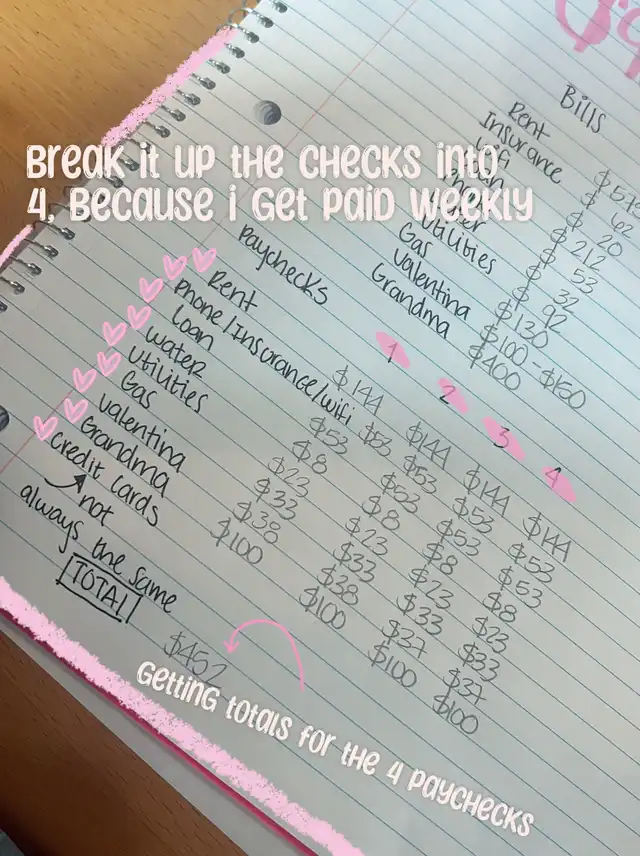 Bills
Rent
Insurance $62
$20
$212
$53
$32
utilities $92
Gas $130
valentina $100 - $150
Grandma $400
Break it up the checks into
4, Because i get paid weekly
Paychecks 1 2 3 4
Rent $144 $144 $144 $144
Phone/Insurance/wifi $53 $53 $53 $53
Loan $53 $53 $53 $53
water $8 $8 $8 $8
utilities $23 $23 $23 $23
Gas $33 $33 $33 $33
valentina $38 $38 $37 $37
Grandma $100 $100 $100 $100
credit cards
not
always the same
TOTAL
$452
getting totals for the 4 paychecks